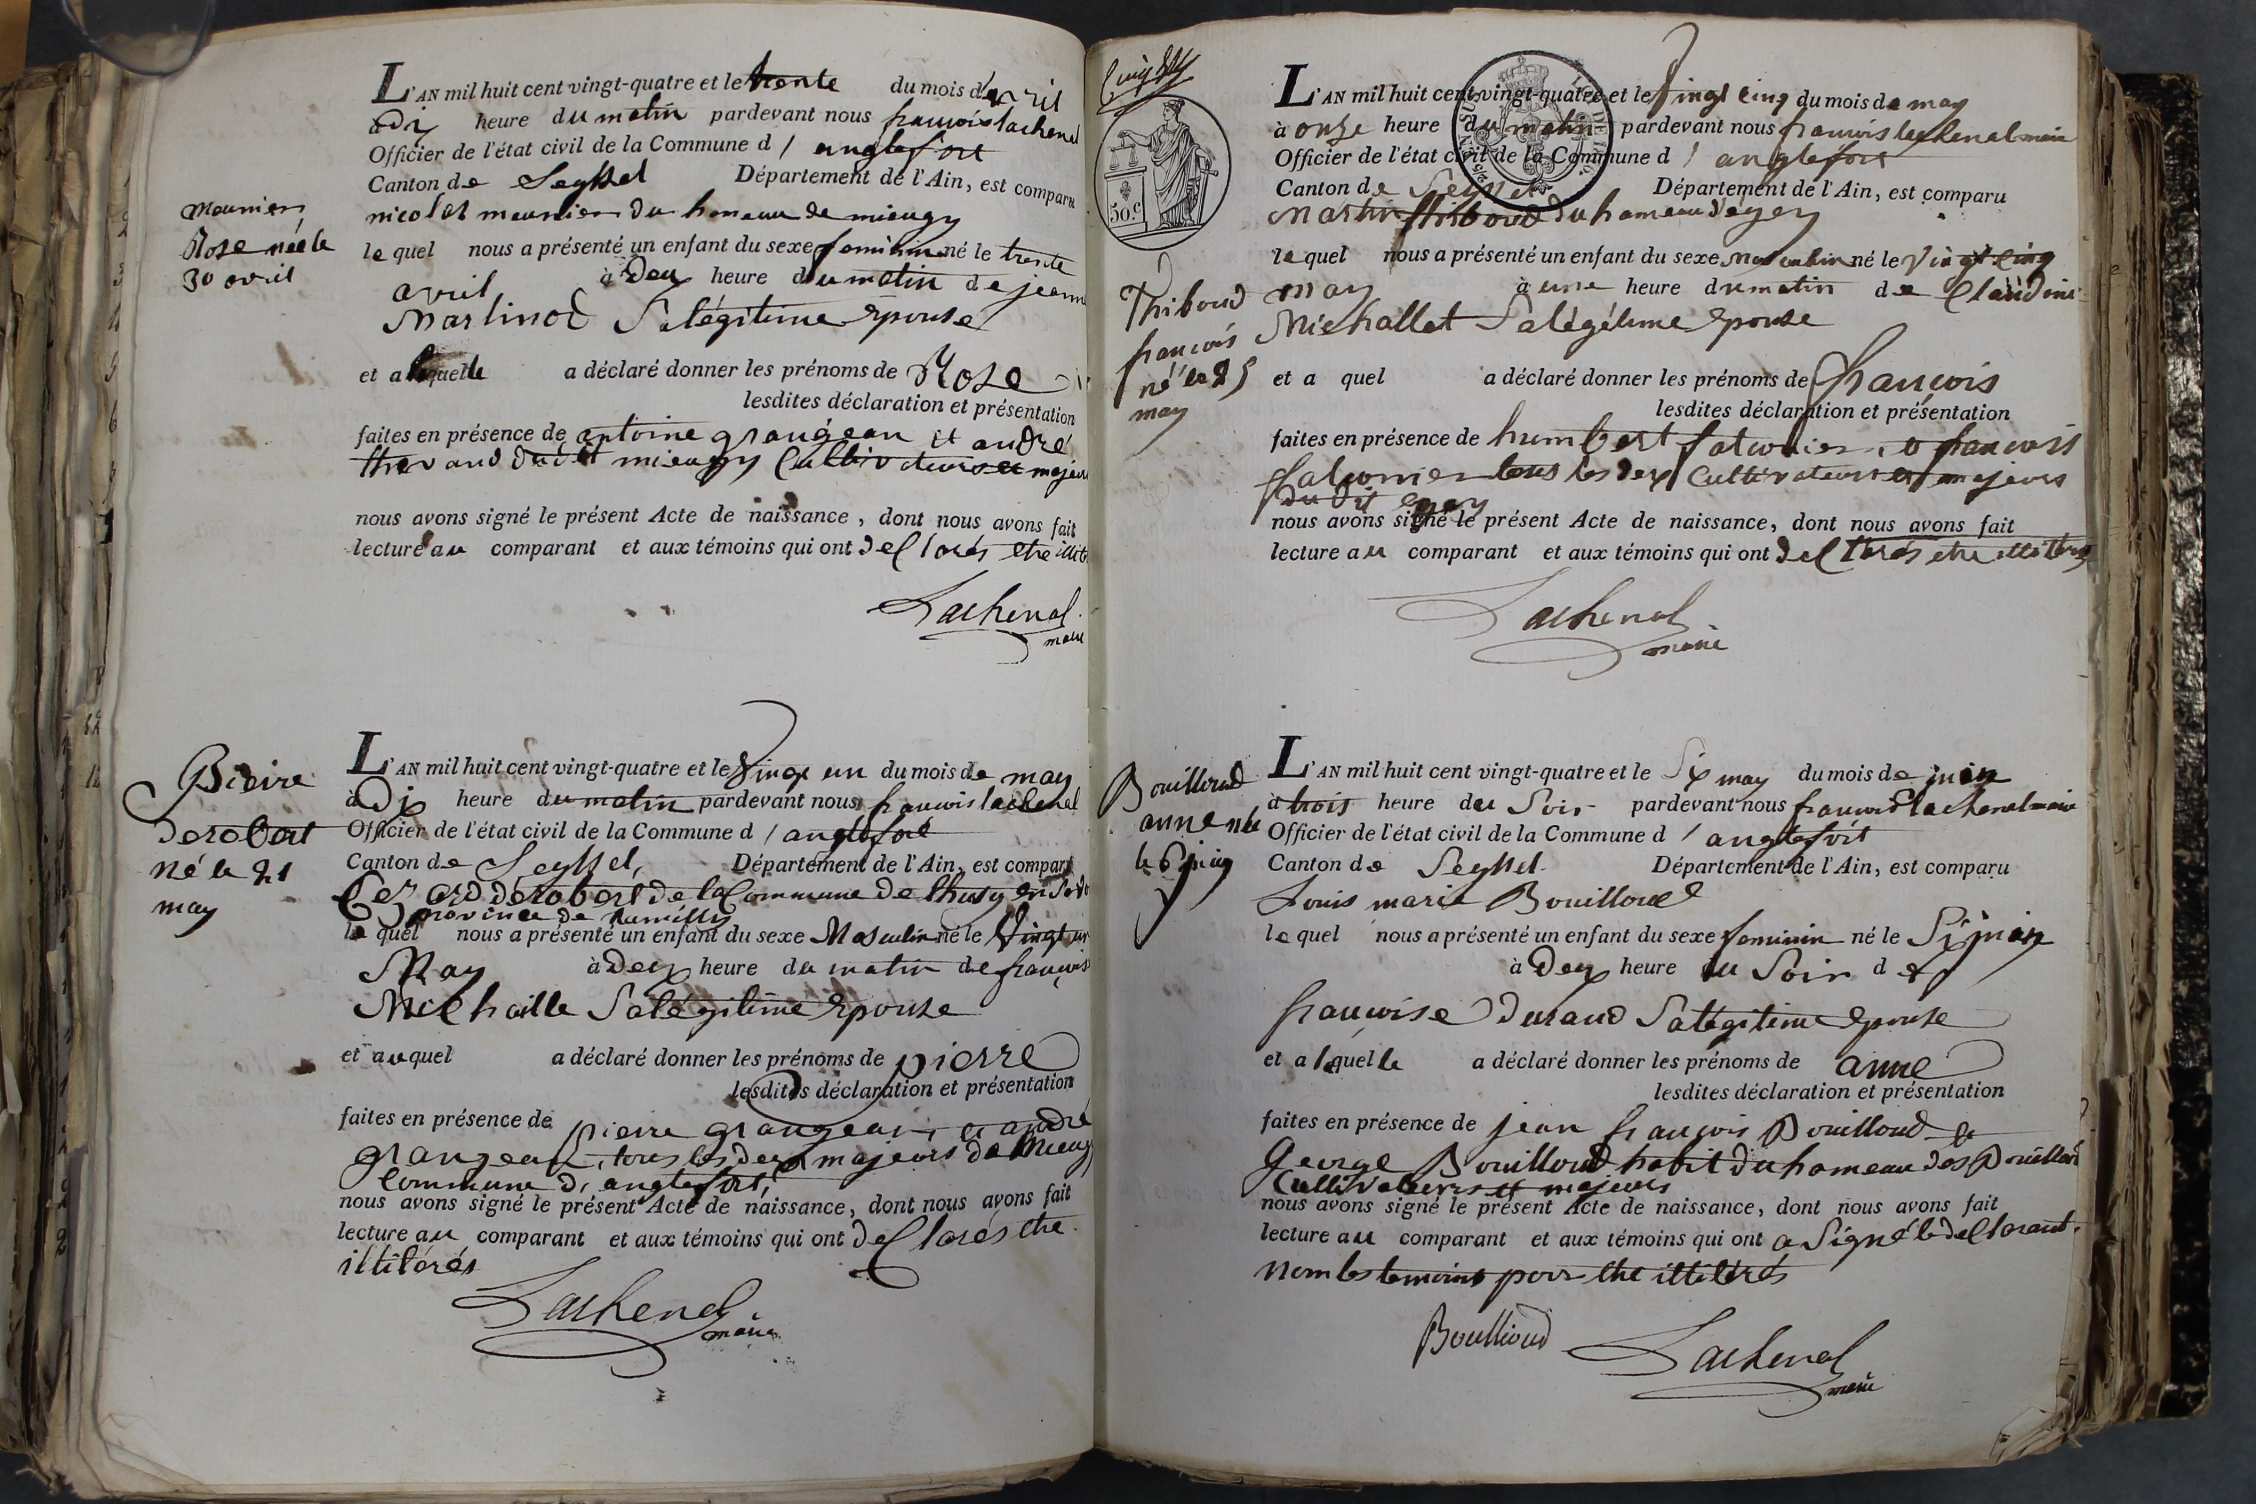 L'AN mil huit cent vingt-quatre et le trente du mois d'avril
à dix heure du matin pardevant nous françois lachenal
Officier de l'état civil de la Commune d'anglefort
Canton de Seyssel Département de l'Ain, est comparu
nicolet meunier du hameau de mieugy
le quel nous a présenté un enfant du sexe feminin né le trente
avril à deux heure du matin de jeanne
Martinod Sa légitime Epouse
et a lequelle a déclaré donner les prénoms de Rose
lesdites déclaration et présentation
faites en présence de antoine grangean et andré
du dit mieugy Cultivateurs et majeurs
nous avons signé le présent Acte de naissance, dont nous avons fait
lecture au comparant et aux témoins qui ont declarés etre illit
Lachenal
maire
Meunier
Rose née le
30 avril
L'AN mil huit cent vingt-quatre et le Vingt un du mois de may
à Dix heure du matin pardevant nous françois lachenal
Officier de l'état civil de la Commune d'anglefort
Canton de Seyssel, Département de l'Ain, est comparu
derobert de la Commune de thusy en
province de rumilly
le quel nous a présenté un enfant du sexe Masculin né le Vingt un
May à Deux heure du matin de françoise
Michaille Sa légitime Epouse
et auquel a déclaré donner les prénoms de pierre
lesdites déclaration et présentation
faites en présence de pierre grangean et andré
grangean, tous les deux majeurs de Mieugy
Commune d'anglefort,
nous avons signé le présent Acte de naissance, dont nous avons fait
lecture au comparant et aux témoins qui ont declarés etre
illitérés
Lachenal
maire
derobert
né le 21
may
50.c
L'AN mil huit cent vingt-quatre et le Vingt cinq du mois de may
à onze heure du matin pardevant nous francois lachenal maire
Officier de l'état civil de la Commune d'anglefort
Canton de Seyssel Département de l'Ain, est comparu
Martin thiboud du hameau d'égey
le quel nous a présenté un enfant du sexe masculin né le Vingt cinq
may à une heure du matin de Claudine
Michallet Sa légétime Epouse
et a quel a déclaré donner les prénoms de françois
lesdites déclaration et présentation
faites en présence de humbert falconier, et francois
falconier tous les deux Cultivateurs et majeurs
du dit egey
nous avons signé le présent Acte de naissance, dont nous avons fait
lecture au comparant et aux témoins qui ont declarés etre
Lachenal
maire
Thiboud
francois
né le 25
may
L'AN mil huit cent vingt-quatre et le Six may du mois de juin
à trois heure du Soir pardevant nous francois lachenal maire
Officier de l'état civil de la Commune d'anglefort
Canton de Seyssel Département de l'Ain, est comparu
Louis marie Bouilloud
le quel nous a présenté un enfant du sexe feminin né le Six juin
à Deux heure du Soir de
francoise Durand Sa légitime Epouse
et a lequelle a déclaré donner les prénoms de anne
lesdites déclaration et présentation
faites en présence de jean françois Bouilloud et
George Bouilloud habit du hameau des Bouilloud
Cultivateurs et majeurs
nous avons signé le présent Acte de naissance, dont nous avons fait
lecture au comparant et aux témoins qui ont a Signé le declarant.
Nom les temoins pour etre illitérés
Boullioud
Lachenal
maire
Bouilloud
anne née
le 6 juin